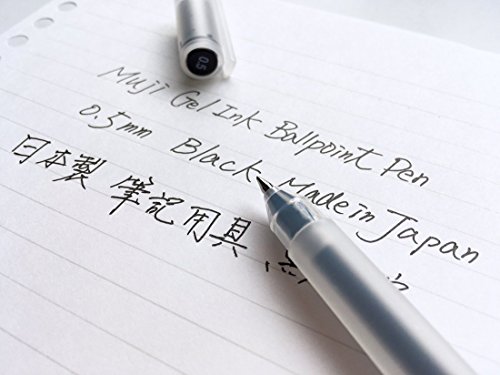 0.5
Muji Gel Ink Ballpoint Pen
0.5mm Black Made in Japan
日本製 筆記用具